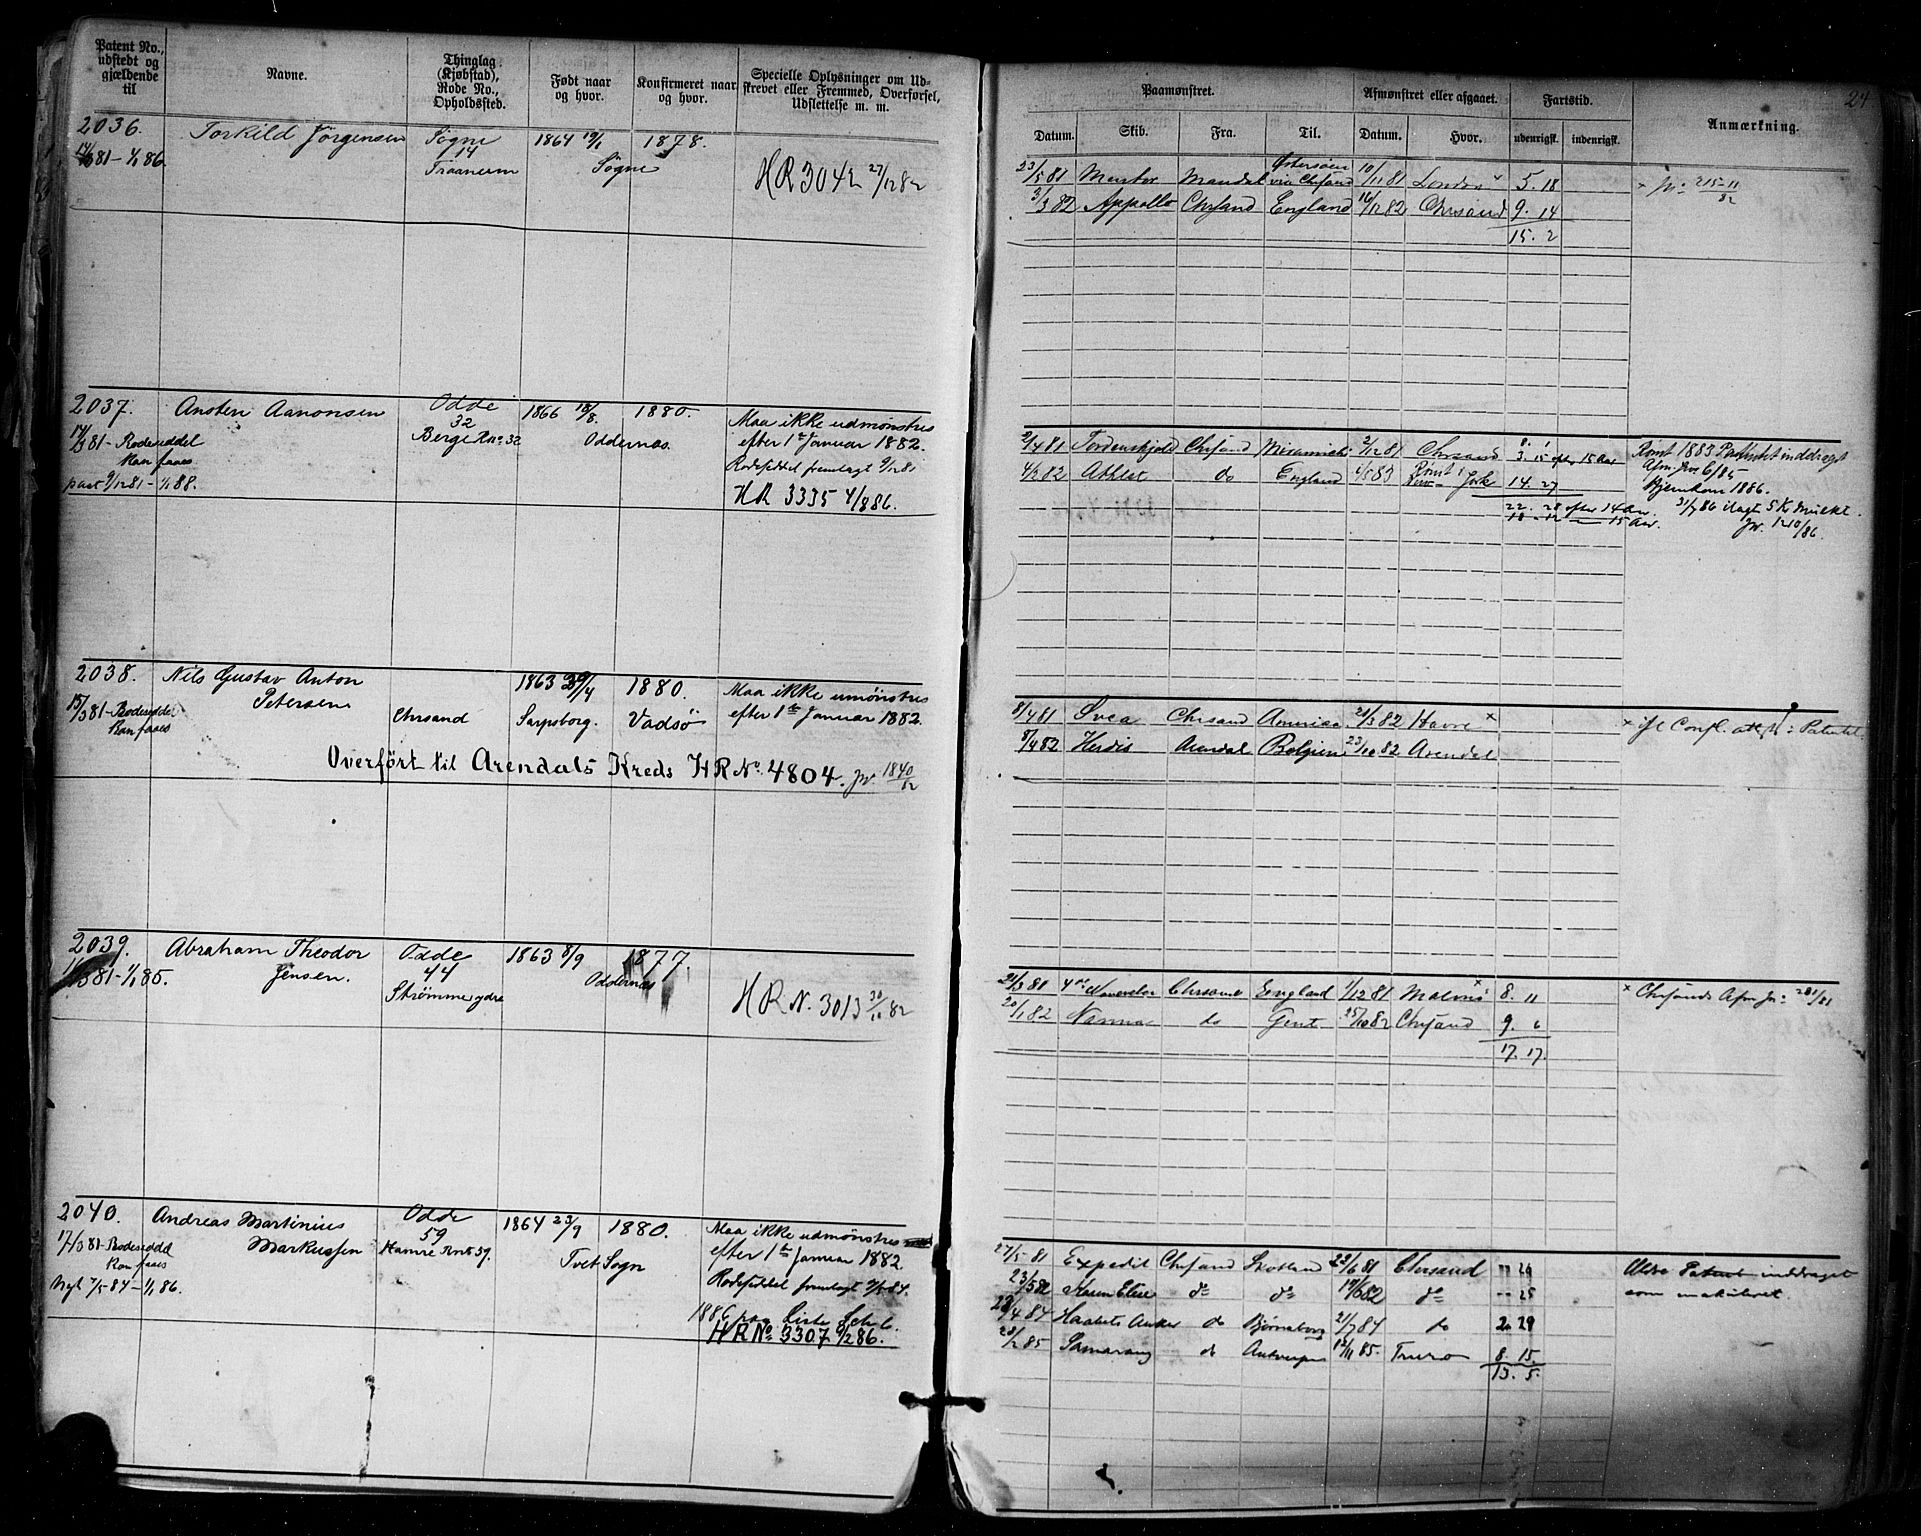 Patent No., udstedt og gjældende til
Navne.
Thinglag (Kjøbstad), Rode No., Opholdssted.
Født naar og hvor.
Konfirmeret naar og hvor.
Specielle Oplysninger om Udskrevet eller Fremmed, Overførsel, Udslettelse m. m.
2036.
Torkild Jörgensen
Søgne
14
1864 19/1
1878.
81-1/1 86.
Søgne
HR 3042 27/12 82
2037.
Ansten Aanonsen
Odde
32
1866 18/8.
1880.
Maa ikke udmønstres
17/3 81- Rodeseddel
Berge Rno 32
Oddernes.
efter 1ste Januar 1882.
kan faaes
Rodeseddel fremlagt 9/12 81
paat 9/12 81-1/1 88.
HR 3335 4/8 86.
2038.
Nils Gustav Anton
1863 29/4
1880.
Maa ikke umönstres
Petersen
15/3 81-Rodeseddel
Chrsand
Sarpsborg.
Vadsø
efter 1ste Januar 1882.
kan faaes
Overført til Arendals Kreds HR No. 4804. Jr. 1840/82
2039.
Abraham Theodor
Odde
1863 8/9
1877.
Jensen.
44
81-1/1 85.
Oddernes
Strømme ydre
HR N. 3013 30/11 82
2040.
Andreas Martinius
Odde
1864 23/9
1880.
Maa ikke udmønstres
Markussen
59
17/3 81-Rodeseddel
Hamre Rn 59.
efter 1ste Januar 1882.
kan faaes
Tvet Sogn
Nyt 7/5 84-1/1 86.
Rodeseddel fremlagt 7/5 84.
1886 paa Liste
HR No 3307 9/2 86.
24
Paamønstret.
Afmønstret eller afgaaet.
Fartstid.
Anmærkning.
Datum.
Skib.
Fra.
Til.
Datum.
Hvor.
udenrigsk.
indenrigsk.
Østersøen
23/5 81 Mentor Mandal via Chrsand 10/11 81 London 5. 18
× Jr. 215-11/82
3/3 82 Appollo Chrsand England 16/12 82 Chrsand 9. 14
15. 2
2/4 81 Tordenskjold Chrsand Miramichi 2/12 81 Chrsand 3. 15 efter 15 Aar
Rømt 1883 Patentet inddraget
4/2 82 Athlet do England 4/5 83 Rømt New York 14. 27
Afm. Jno 6/85
Hjemkom 1886.
22. 28 efter 14 Aar
31/7 86 ilagt 5 Kr Mulkt.
18 - 12 — 15 Aar.
Jr. 1210/86.
8/4 81 Svea Chrsand Amerika 2/3 82 Havre ×
8/4 82 Herdis Arendal Belgien 23/10 82 Arendal
21/3 81 4de November Chrsand England 1/12 81 Malmö × 8. 11
× Chrsands Afm Jr: 281/81
20/1 82 Nanna do Gent 25/10 82 Chrsand 9. 6
17. 17.
27/5 81 Expedit Chrsand Skotland 22/6 81 Chrsand " 26
Ældre Patent inddraget
23/5 82 Karen Elise do do 17/6 82 do " 25
som makuleret.
28/4 84 Haabets Anker do Bjørneborg 21/7 84 do 2. 29
20/2 85 Samarang do Antverpen 12/11 85. Truro 8. 15.
13. 5.